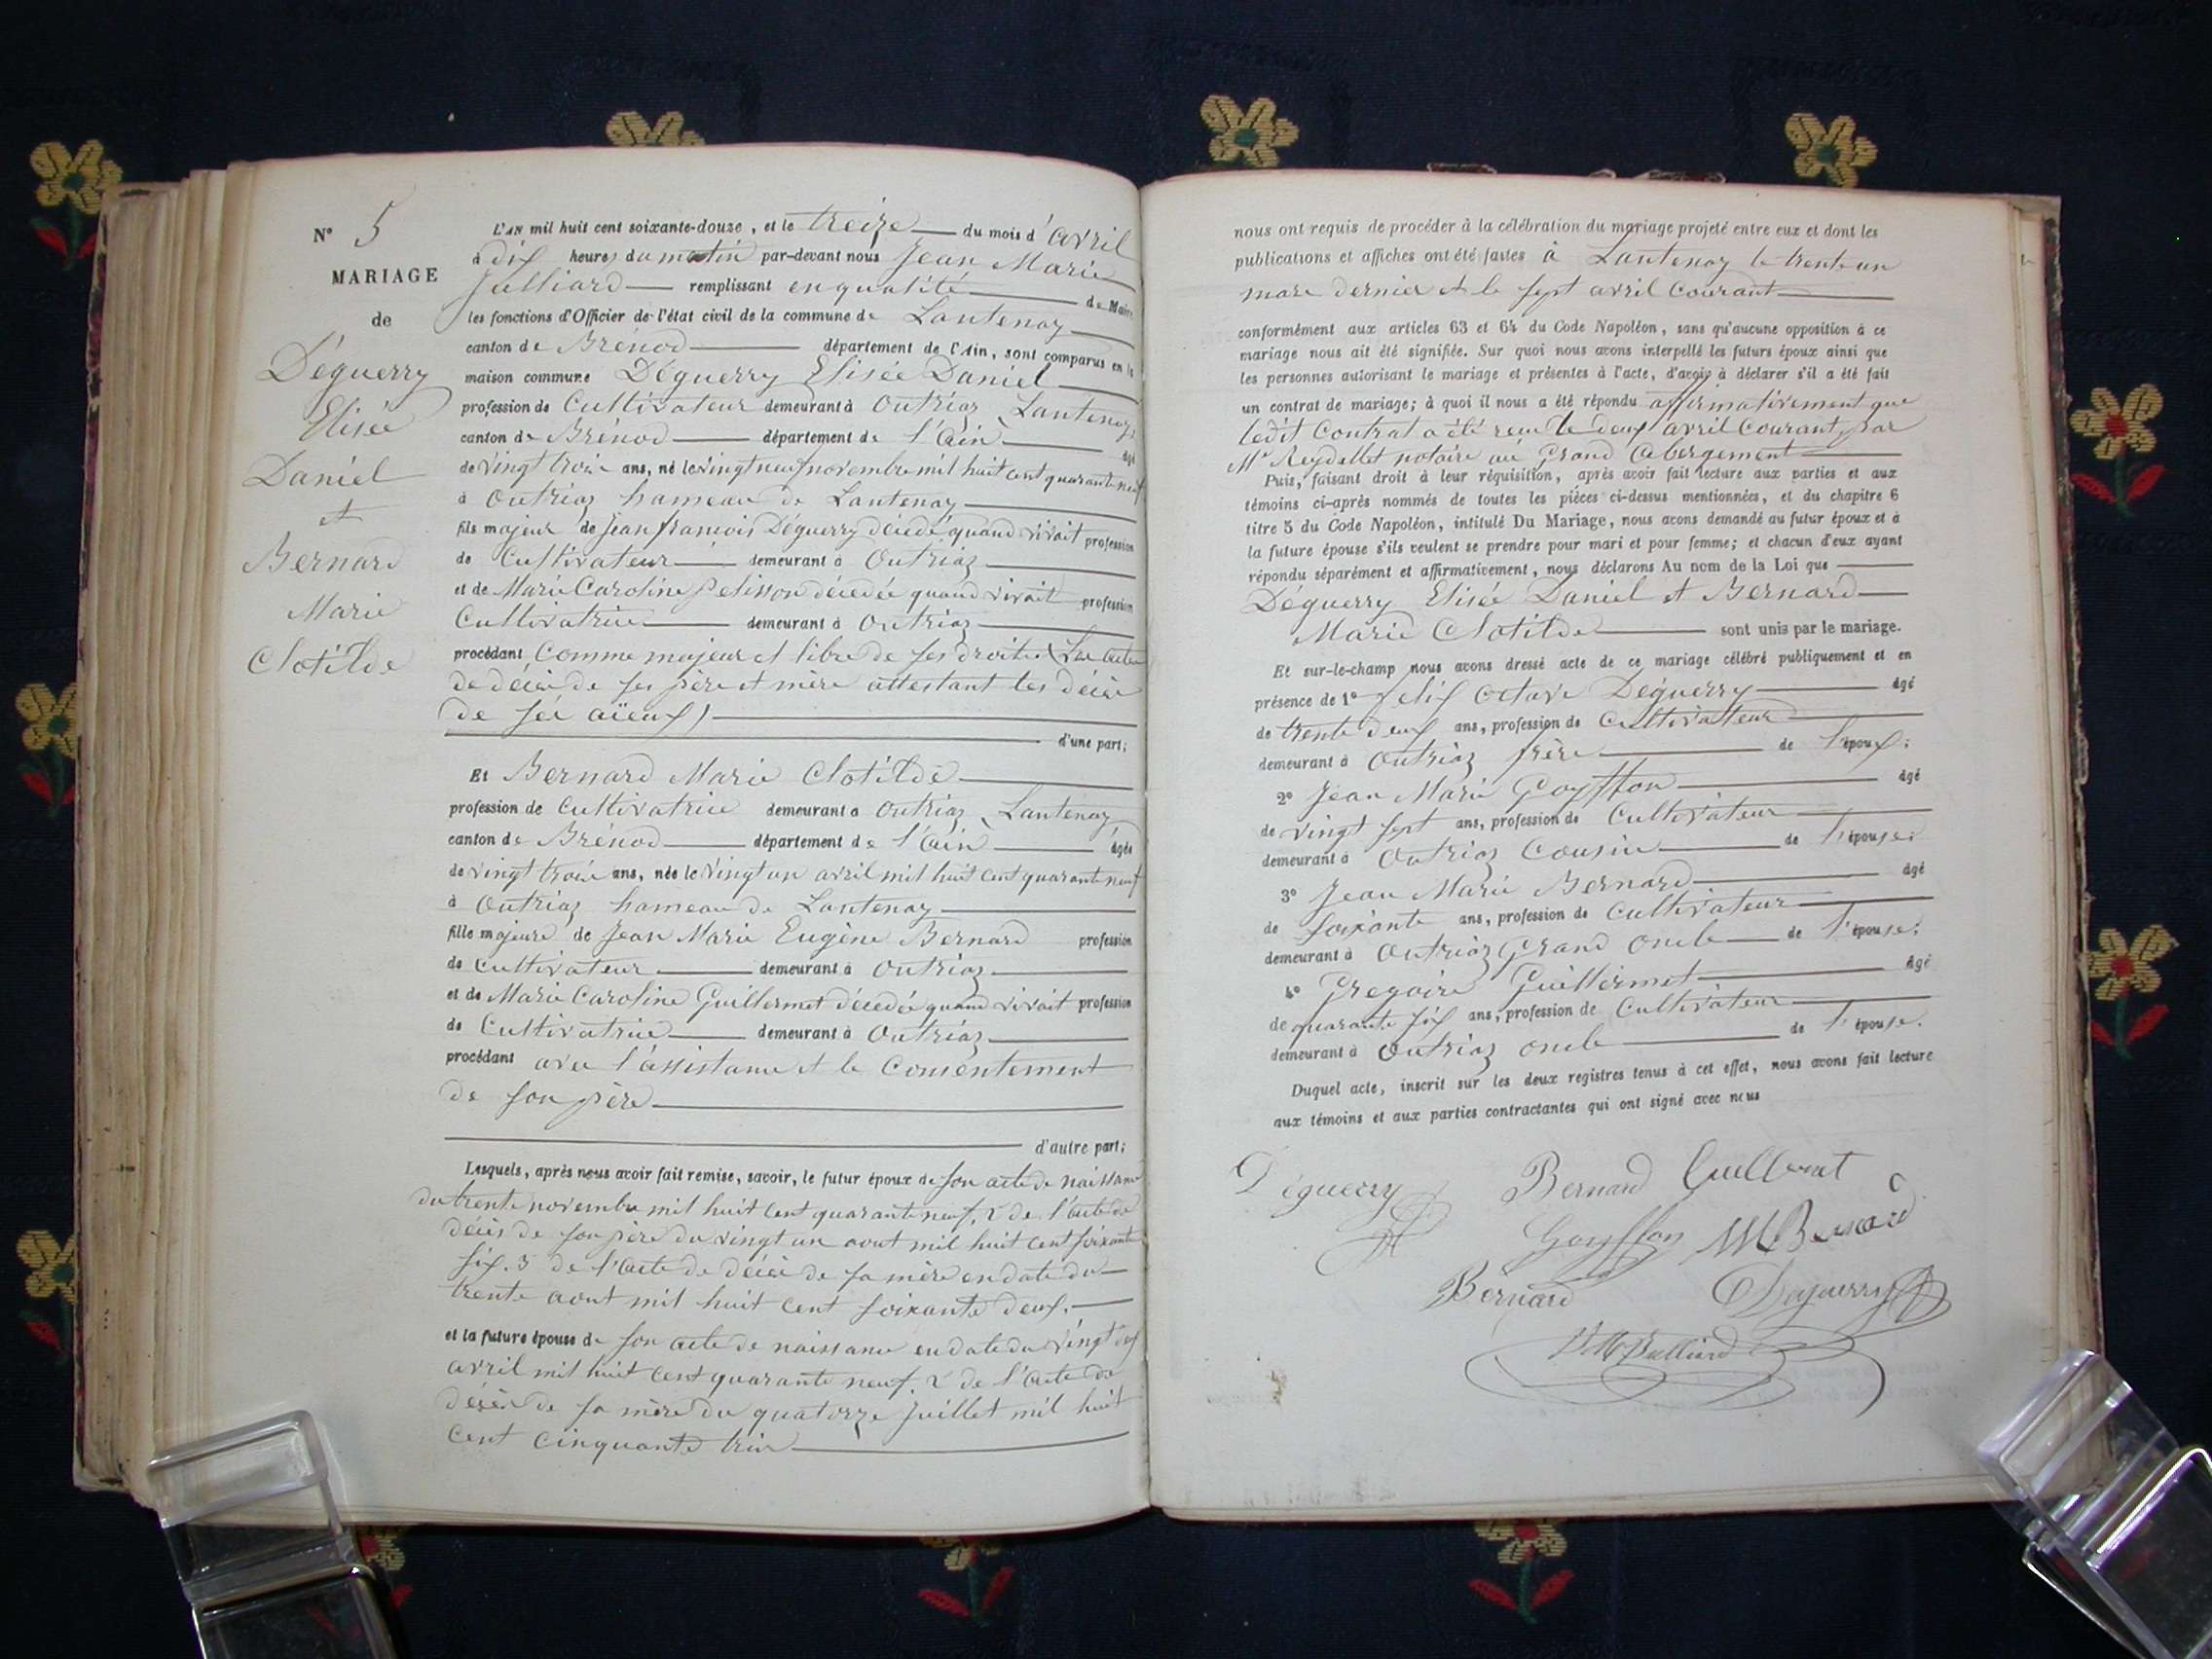 N° 5
MARIAGE
de
Déguerry
Elisée
Daniel
et
Bernard
Marie
Clotilde
L'AN mil huit cent soixante-douze, et le treize du mois d'avril
à dix heures du matin par-devant nous Jean Marie
Julliard remplissant en qualité de Maire
les fonctions d'Officier de l'état civil de la commune de Lantenay
canton de Brénod département de l'Ain, sont comparus en la
maison commune Déguerry Elisée Daniel
profession de Cultivateur demeurant à Outriaz, Lantenay
canton de Brénod département de l'Ain âgé
de vingt trois ans, né le vingt neuf novembre mil huit cent quarante neuf
à Outriaz hameau de Lantenay
fils majeur de Jean françois Déguerry décédé quand vivait profession
de Cultivateur demeurant à Outriaz
et de Marie Caroline Pelisson décédée quand vivait profession
Cultivatrice demeurant à Outriaz
procédant Comme majeur et libre de ses droits (Les actes
de décès de ses père et mère attestant les décès
de ses aïeux)
d'une part;
Et Bernard Marie Clotilde
profession de Cultivatrice demeurant à Outriaz, Lantenay
canton de Brénod département de l'Ain âgée
de vingt trois ans, née le vingt un avril mil huit cent quarante neuf
à Outriaz hameau de Lantenay
fille majeure de Jean Marie Eugène Bernard profession
de Cultivateur demeurant à Outriaz
et de Marie Caroline Guillermet décédée quand vivait profession
de Cultivatrice demeurant à Outriaz
procédant avec l'assistance et le Consentement
de son père
d'autre part;
Lesquels, après nous avoir fait remise, savoir, le futur époux de son acte de naissance
du trente novembre mil huit cent quarante neuf, 2 de l'acte de
décès de son père du vingt un aout mil huit cent soixante
six. 3 de l'acte de décès de sa mère en date du
trente aout mil huit cent soixante deux.
et la future épouse de son acte de naissance en date du vingt deux
avril mil huit cent quarante neuf 2 de l'acte de
décès de sa mère du quatorze juillet mil huit
cent cinquante trois
nous ont requis de procéder à la célébration du mariage projeté entre eux et dont les
publications et affiches ont été faites à Lantenay le trente un
mars dernier et le sept avril Courant
conformément aux articles 63 et 64 du Code Napoléon, sans qu'aucune opposition à ce
mariage nous ait été signifiée. Sur quoi nous avons interpellé les futurs époux ainsi que
les personnes autorisant le mariage et présentes à l'acte, d'avoir à déclarer s'il a été fait
un contrat de mariage; à quoi il nous a été répondu affirmativement que
ledit Contrat a été reçu le deux avril Courant, par
Me Reydellet notaire au Grand Abergement
Puis, faisant droit à leur réquisition, après avoir fait lecture aux parties et aux
témoins ci-après nommés de toutes les pièces ci-dessus mentionnées, et du chapitre 6
titre 5 du Code Napoléon, intitulé Du Mariage, nous avons demandé au futur époux et à
la future épouse s'ils veulent se prendre pour mari et pour femme; et chacun d'eux ayant
répondu séparément et affirmativement, nous déclarons Au nom de la Loi que
Déguerry Elisée Daniel et Bernard
Marie Clotilde sont unis par le mariage.
Et sur-le-champ nous avons dressé acte de ce mariage célébré publiquement et en
présence de 1° Felix Octave Déguerry âgé
de trente deux ans, profession de Cultivateur
demeurant à Outriaz frère de l'époux;
2° Jean Marie Goyffon âgé
de vingt sept ans, profession de Cultivateur
demeurant à Outriaz Cousin de l'épouse;
3° Jean Marie Bernard âgé
de soixante ans, profession de Cultivateur
demeurant à Outriaz Grand oncle de l'épouse;
4° Gregoire Guillermet âgé
de quarante six ans, profession de Cultivateur
demeurant à Outriaz oncle de l'épouse.
Duquel acte, inscrit sur les deux registres tenus à cet effet, nous avons fait lecture
aux témoins et aux parties contractantes qui ont signé avec nous
Déguerry Bernard Guillermet
Goyffon JM Bernard
Bernard Deguerry
JM Julliard